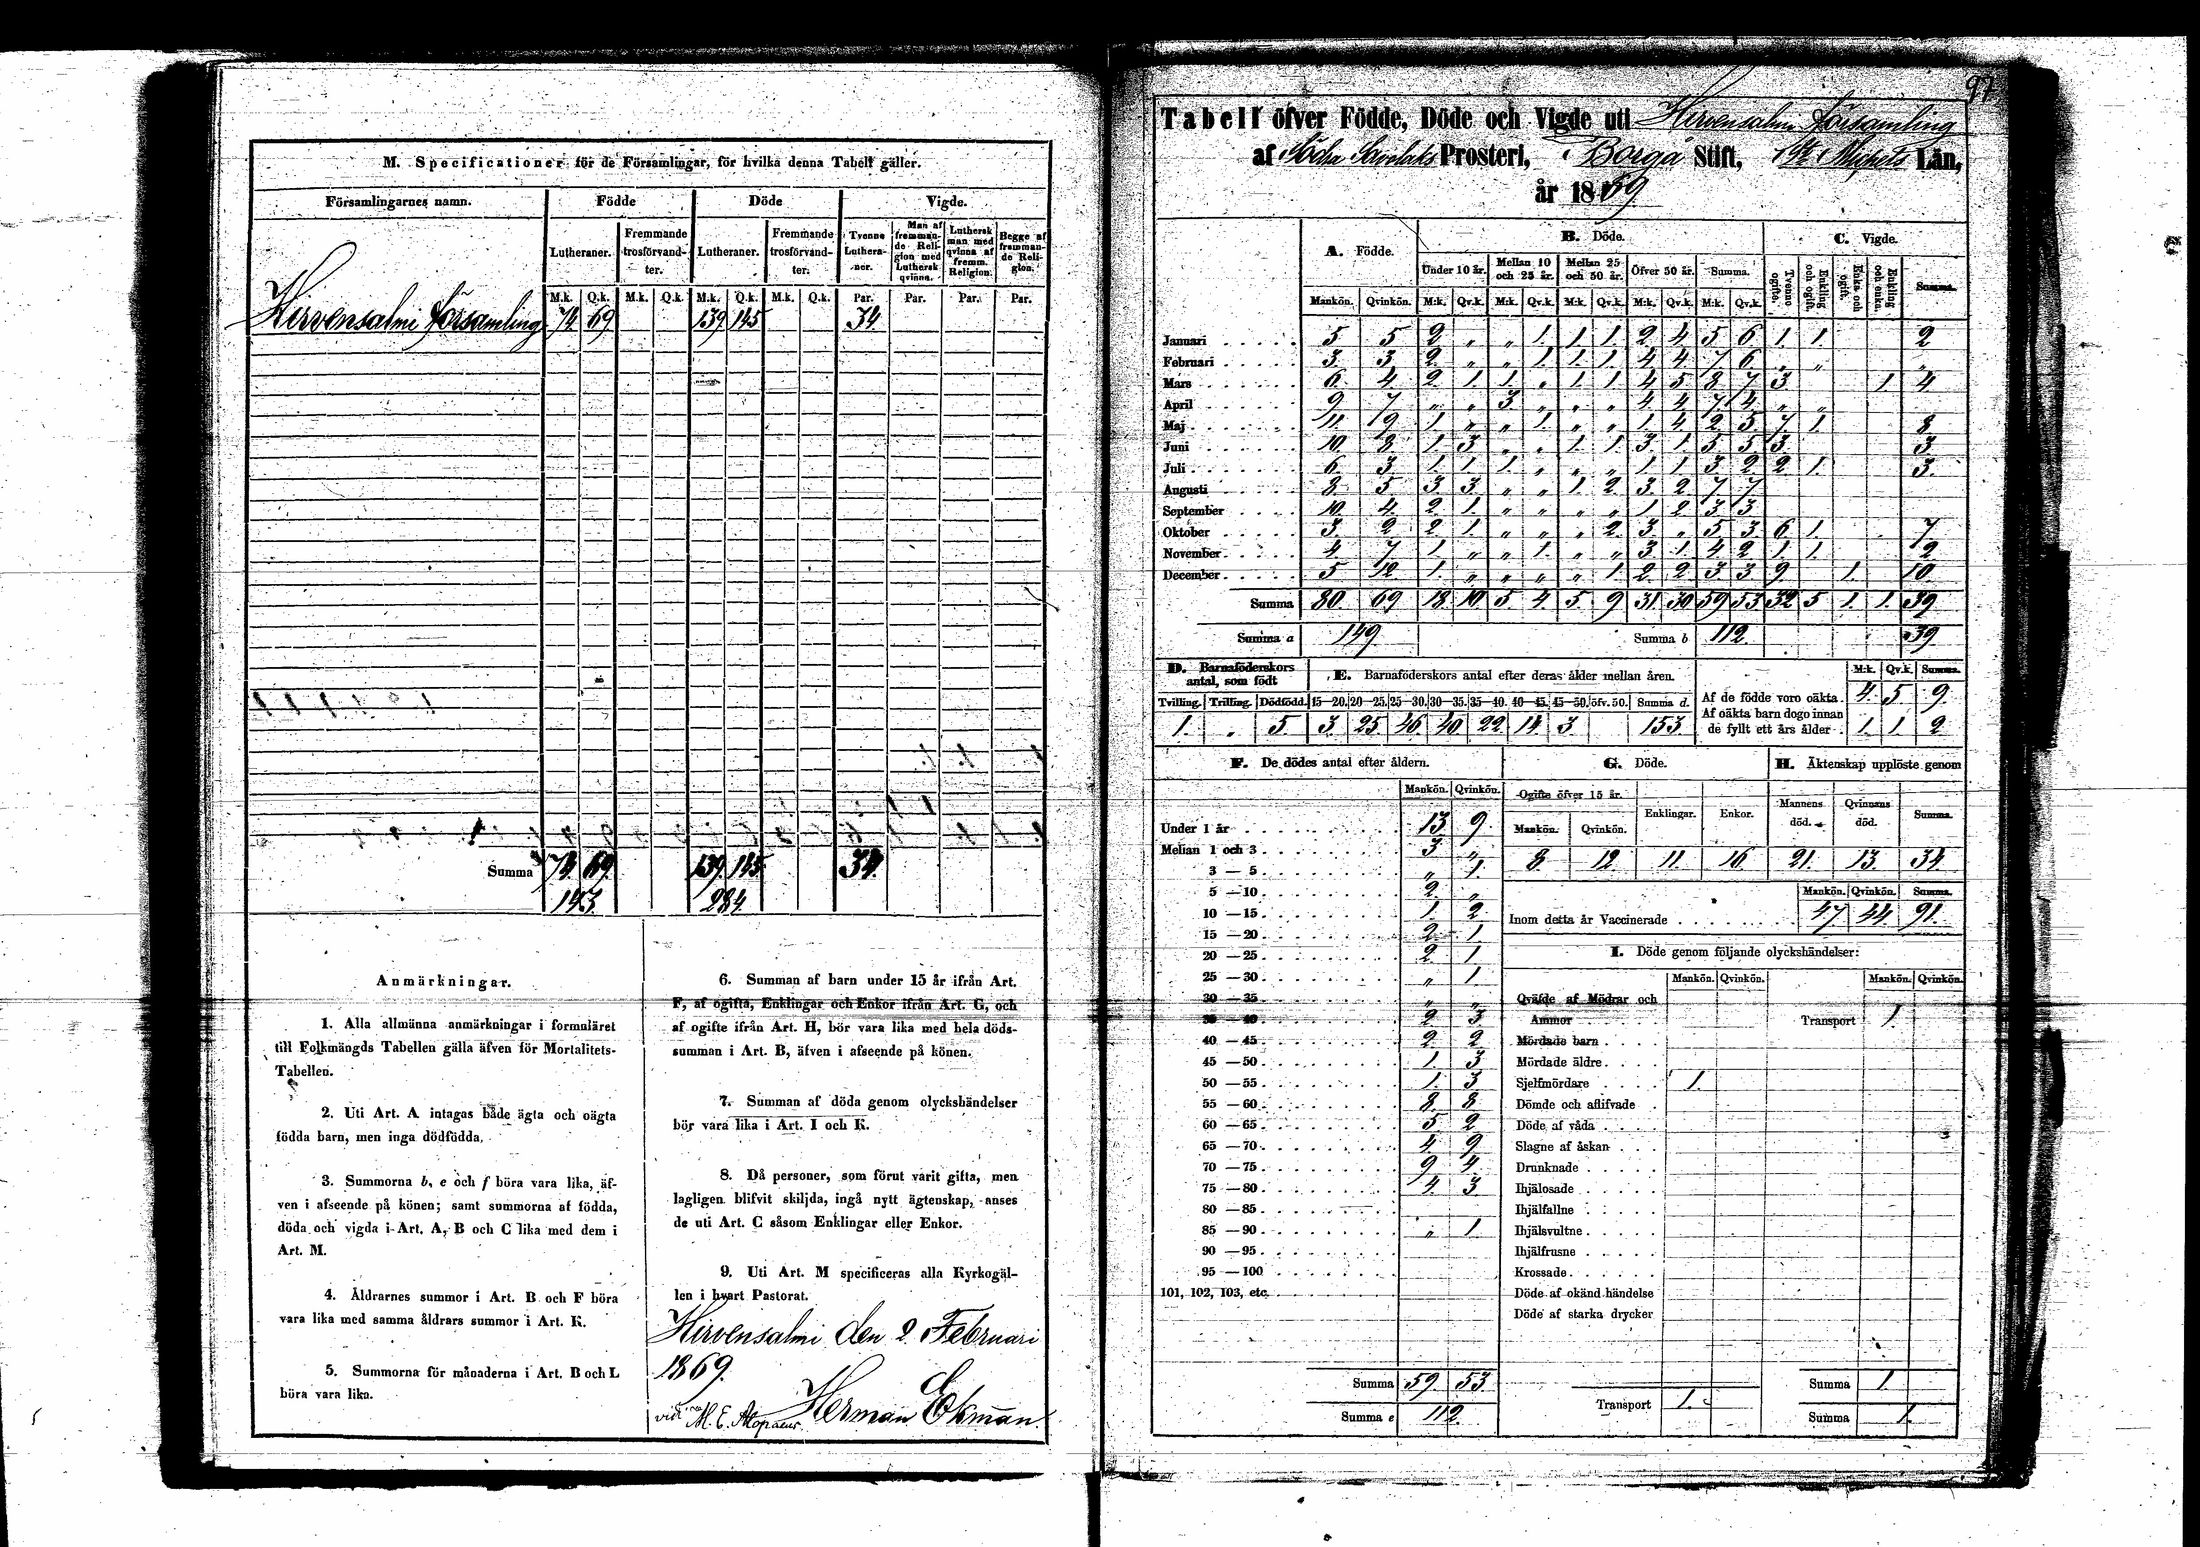 M. Specificationer för de Församlingar, för hvilka denna Tabell gäller.
Församlingarnes namn. Födde Döde Vigde.
Lutheraner. Fremmande trosförvandter. Lutheraner. Fremmande trosförvandter. Tvenne Lutheraner. Man af fremmande Religion med Luthersk qvinna. Luthersk man med qvinna af fremm. Religion. Begge af fremmande Religion.
M.k. Q.k. M.k. Q.k. M.k. Q.k. M.k. Q.k. Par. Par. Par. Par.
Hirvensalmi församling 74 69 139 145 34
Summa 74 69 139 145 34
143 284
Anmärkningar.
1. Alla allmänna anmärkningar i formuläret
till Folkmängds Tabellen gälla äfven för Mortalitets-
Tabellen.
2. Uti Art. A intagas både ägta och oägta
födda barn, men inga dödfödda.
3. Summorna b, e och f böra vara lika, äf-
ven i afseende på könen; samt summorna af födda,
döda och vigda i Art. A, B och C lika med dem i
Art. M.
4. Åldrarnes summor i Art. B och F böra
vara lika med samma åldrars summor i Art. K.
5. Summorna för månaderna i Art. B och L
böra vara lika.
6. Summan af barn under 15 år ifrån Art.
F, af ogifta, Enklingar och Enkor ifrån Art. G, och
af ogifte ifrån Art. H, bör vara lika med hela döds-
summan i Art. B, äfven i afseende på könen.
7. Summan af döda genom olyckshändelser
bör vara lika i Art. I och K.
8. Då personer, som förut varit gifta, men
lagligen blifvit skiljda, ingå nytt ägtenskap, anses
de uti Art. C såsom Enklingar eller Enkor.
9. Uti Art. M specificeras alla Kyrkogäl-
len i hvart Pastorat.
Hirvensalmi den 2 Februari
1869.
Herman Ekman
vidi M. E. Alopaeus.
97
Tabell öfver Födde, Döde och Vigde uti Hirvensalmi församling
af Södra Savolaks Prosteri, Borgå Stift, St Michels Län,
år 1869
A. Födde. B. Döde. C. Vigde.
Under 10 år. Mellan 10 och 25 år. Mellan 25 och 50 år. Öfver 50 år. Summa. Tvenne ogifte. Enkling och ogift. Enka och ogift. Enkling och enka. Summa.
Mankön. Qvinkön. M:k. Qv.k. M:k. Qv.k. M:k. Qv.k. M:k. Qv.k. M:k. Qv.k.
Januari 5 5 2 „ „ 1 1 1 2 4 5 6 1 1 2
Februari 3 3 2 „ „ 1 1 1 4 4 7 6 „ „ „
Mars 6 4 2 1 1 „ 1 1 4 5 8 7 3 1 4
April 9 7 „ „ 3 „ „ „ 4 4 7 4 „ „
Maj 11 9 1 „ „ 1 „ „ 1 4 2 5 7 1 8
Juni 10 8 1 3 „ „ 1 1 3 1 5 5 3 3
Juli 6 3 1 1 1 „ „ „ 1 1 3 2 2 1 3
Augusti 8 5 3 3 „ „ 1 2 3 2 7 7
September 10 4 2 1 „ „ „ „ 1 2 3 3
Oktober 3 2 2 1 „ „ „ 2 3 „ 5 3 6 1 7
November 4 7 1 „ „ 1 „ „ 3 1 4 2 1 1 2
December 5 12 1 „ „ „ „ 1 2 2 3 3 9 1 10
Summa 80 69 18 10 5 4 5 9 31 30 59 53 32 5 1 1 39
Summa a 149 Summa b 112 39
D. Barnaföderskors antal, som födt E. Barnaföderskors antal efter deras ålder mellan åren. M:k. Qv.k. Summa.
Tvilling. Trilling. Dödfödd. 15—20. 20—25. 25—30. 30—35. 35—40. 40—45. 45—50. öfv. 50. Summa d.
1 „ 5 3 25 46 40 22 14 3 153
Af de födde voro oäkta 4 5 9
Af oäkta barn dogo innan
de fyllt ett års ålder 1 1 2
F. De dödes antal efter åldern.
Mankön. Qvinkön.
Under 1 år 13 9
Mellan 1 och 3 3 „
3 — 5 „ 1
5 — 10 2 „
10 — 15 1 2
15 — 20 2 1
20 — 25 2 1
25 — 30 „ 1
30 — 35 „ „
35 — 40 2 3
40 — 45 2 2
45 — 50 1 3
50 — 55 1 3
55 — 60 8 8
60 — 65 5 2
65 — 70 4 9
70 — 75 9 4
75 — 80 4 3
80 — 85
85 — 90 „ 1
90 — 95
95 — 100
101, 102, 103, etc.
Summa 59 53
Summa e 112
G. Döde. H. Äktenskap upplöste genom
Ogifte öfver 15 år. Enklingar. Enkor. Mannens död. Qvinnans död. Summa.
Mankön. Qvinkön.
8 12 11 16 21 13 34
Mankön. Qvinkön. Summa.
Inom detta år Vaccinerade 47 44 91
I. Döde genom följande olyckshändelser:
Mankön. Qvinkön. Mankön. Qvinkön.
Qväfde af Mödrar och
Ammor Transport 1
Mördade barn
Mördade äldre
Sjelfmördare 1
Dömde och aflifvade
Döde af våda
Slagne af åskan
Drunknade
Ihjälosade
Ihjälfallne
Ihjälsvultne
Ihjälfrusne
Krossade
Döde af okänd händelse
Döde af starka drycker
Summa 1
Transport 1
Summa 1